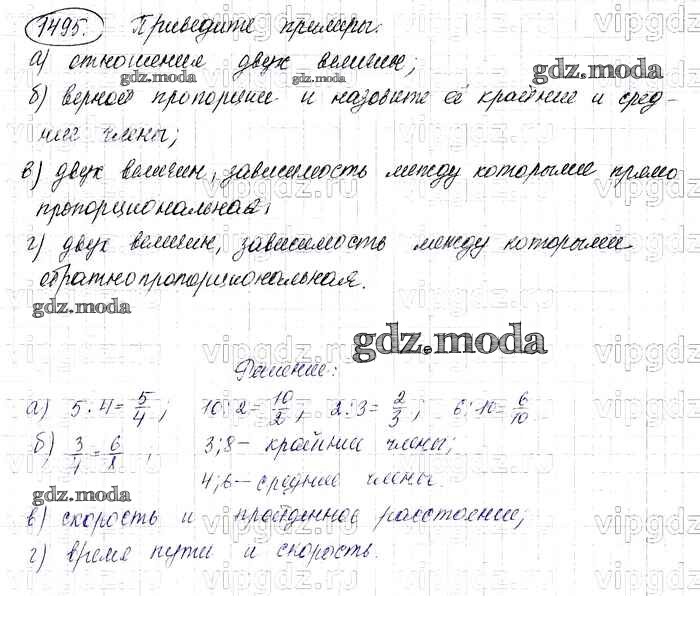 1495. Приведите примеры:
а) отношения двух величин;
gdz.moda gdz.moda gdz.moda
б) верной пропорции и назовите её крайние и сред-
ние члены;
в) двух величин, зависимость между которыми прямо
пропорциональная;
г) двух величин, зависимость между которыми
обратно пропорциональная.
gdz.moda
gdz.moda
Решение:
а) 5 : 4 = 5/4; 10 : 2 = 10/2; 2 : 3 = 2/3; 6 : 10 = 6/10
б) 3/4 = 6/8, 3; 8 – крайние члены;
4; 6 – средние члены.
gdz.moda
в) скорость и пройденное расстояние;
г) время пути и скорость.